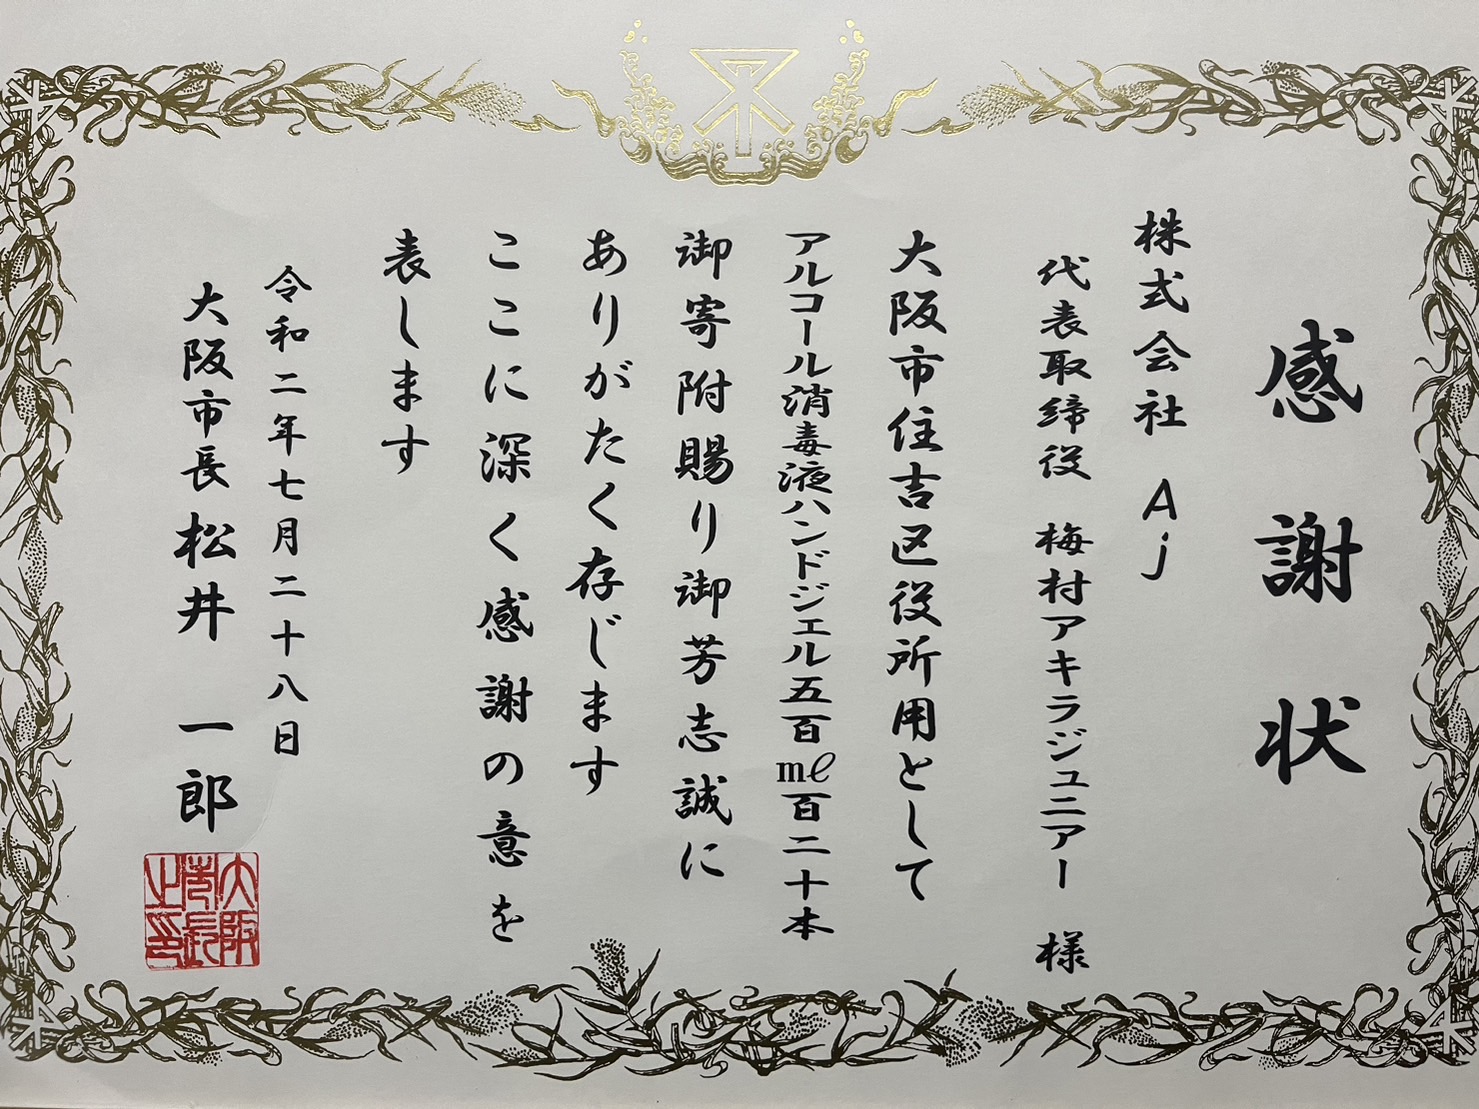 感謝状
株式会社 Aj
代表取締役 梅村アキラジュニアー 様
大阪市住吉区役所用として
アルコール消毒液ハンドジェル五百mℓ百二十本
御寄附賜り御芳志誠に
ありがたく存じます
ここに深く感謝の意を
表します
令和二年七月二十八日
大阪市長 松井 一郎
大阪市長之印